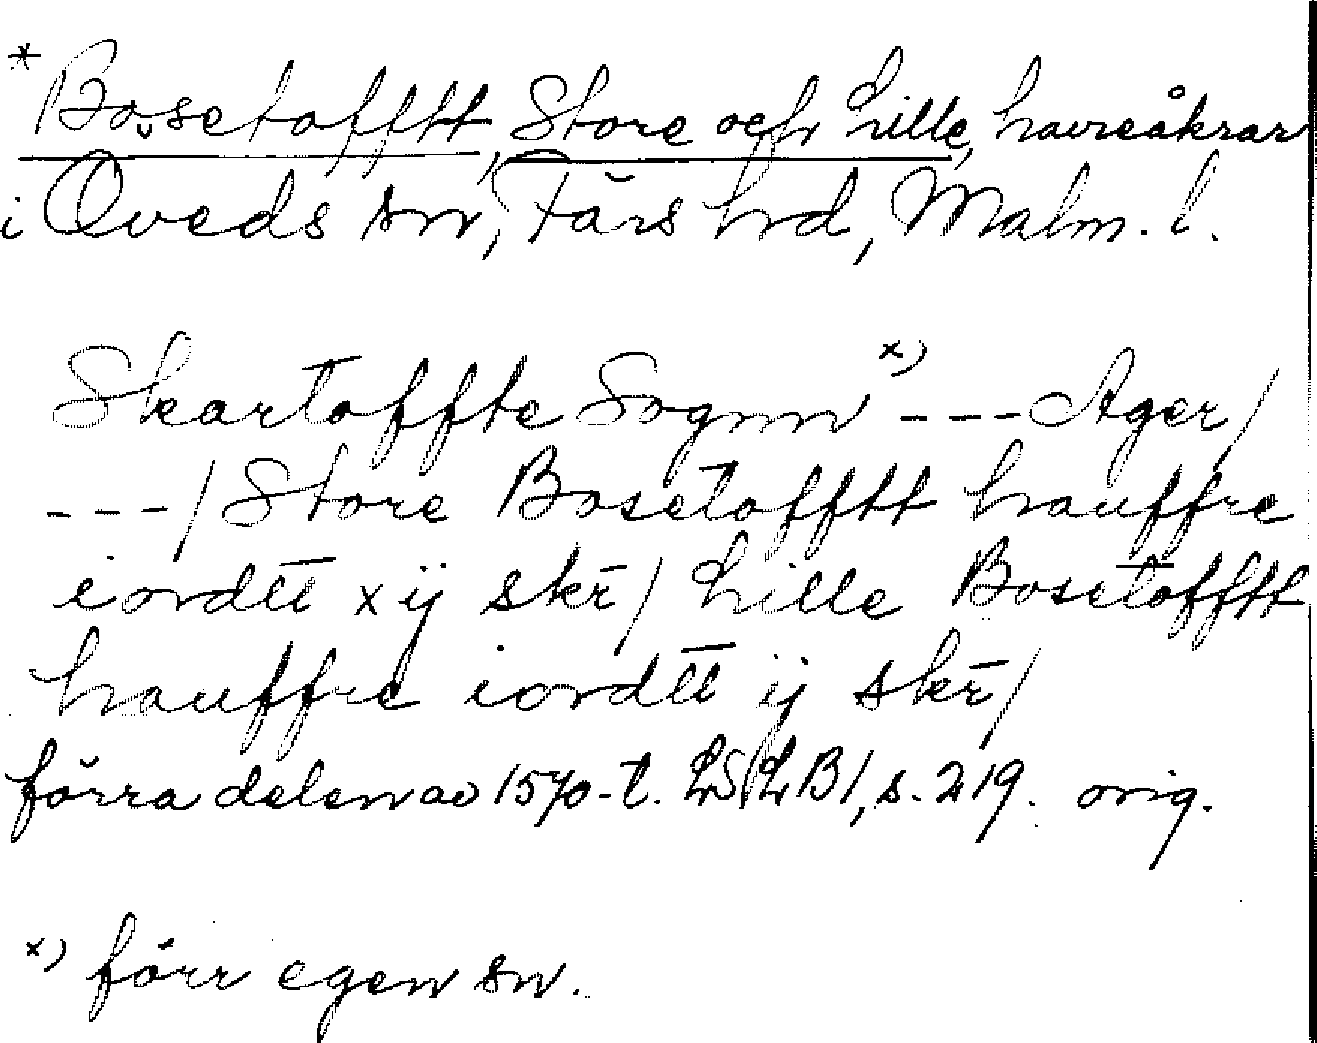 *Bosetofftt, Store och Lille, havreåkrar
i Öveds sn, Färs hd, Malm. l.
Skartoffte Sognn x) --- Ager/
---/ Store Bosetofftt hauffre
iordtt xij skr/ Lille Bosetofftt
hauffre iordtt ij skr/
förra delen av 1570-t. LSLB1, s. 219. orig.
x) förr egen sn.